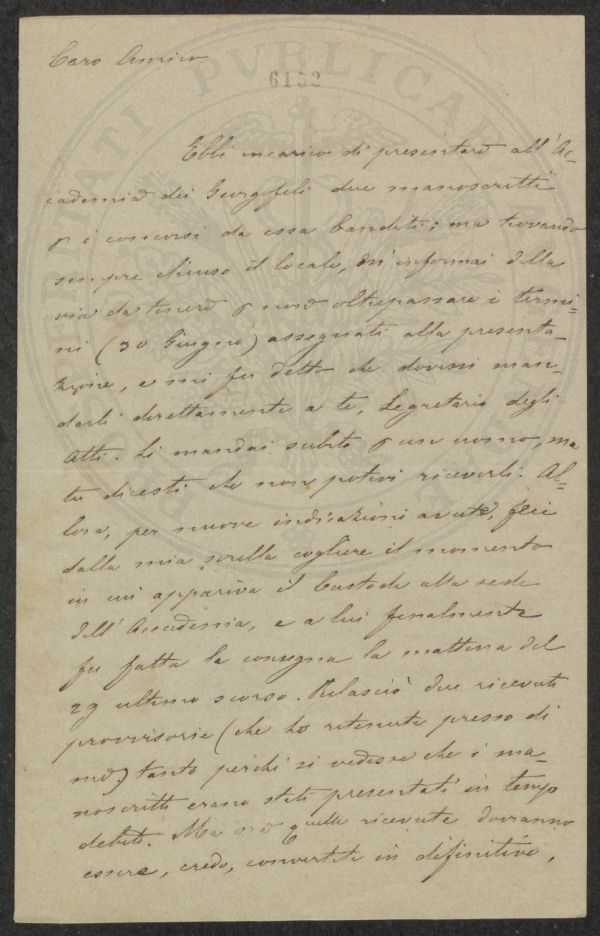 6152
Caro Amico
Ebbi incarico di presentare all'Ac-
cademia dei Georgofili due manoscritti
p i concorsi da essa banditi; ma trovando
sempre chiuso il locale, m'informai della
via da tenere p non oltrepassare i termi-
ni (30 Giugno) assegnati alla presenta-
zione, e mi fu detto che dovessi man-
darli direttamente a te, Segretario degli
Atti. Li mandai subito p un uomo, ma
tu dicesti che non potevi riceverli. Al-
lora, per nuove indicazioni avute, feci
dalla mia sorella cogliere il momento
in cui appariva il Custode alla sede
dell'Accademia, e a lui finalmente
fu fatta la consegna la mattina del
29 ultimo scorso. Rilasciò due ricevute
provvisorie (che ho ritenute presso di
me) tanto perchè si vedesse che i ma-
noscritti erano stati presentati in tempo
debito. Ma quelle ricevute dovranno
essere, credo, convertite in definitive,